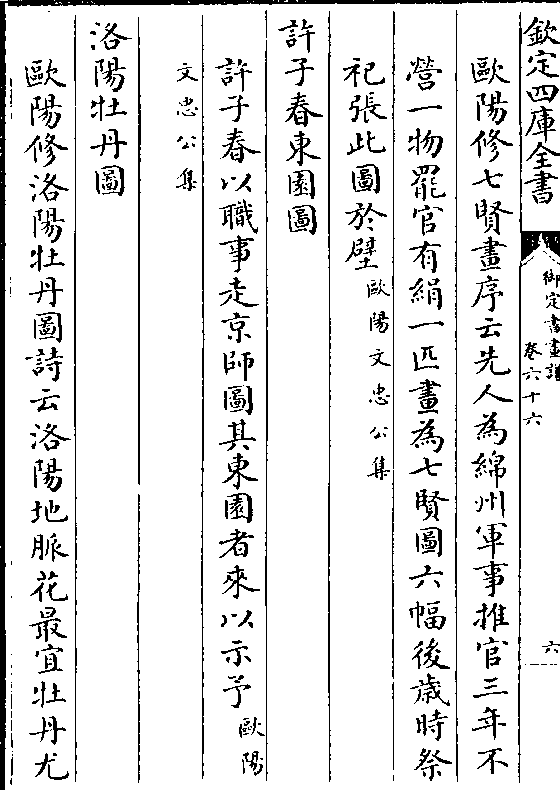 欽定四庫全書
御定書畫譜
卷六十六
六
歐陽修七賢畫序云先人為綿州軍事推官三年不
營一物罷官有絹一匹畫為七賢圖六幅後歲時祭
祀張此圖於壁歐陽文忠公集
許子春東園圖
許子春以職事走京師圖其東園者來以示予歐陽
文忠公集
洛陽牡丹圖
歐陽修洛陽牡丹圖詩云洛陽地脈花最宜牡丹尤